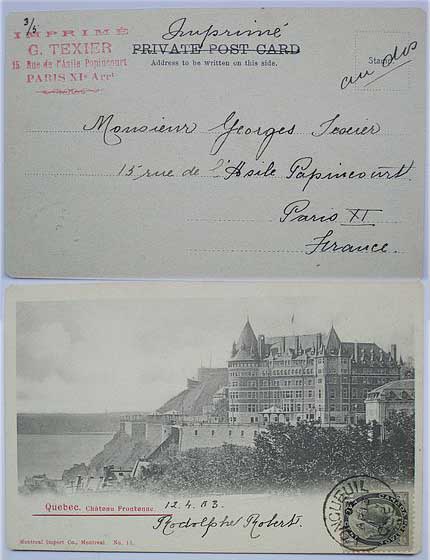 3/5
IMPRIMÉ
G. TEXIER
15, Rue de l'Asile Popincourt
PARIS XIe Arrt
Imprimé
PRIVATE POST CARD
Address to be written on this side.
Stamp
au dos
Monsieur Georges Texier
15 rue de l'Asile Papincourt
Paris XI
France.
Quebec. Château Frontenac
12.4.03
Rodolphe Robert.
Montreal Import Co., Montreal. No. 11.